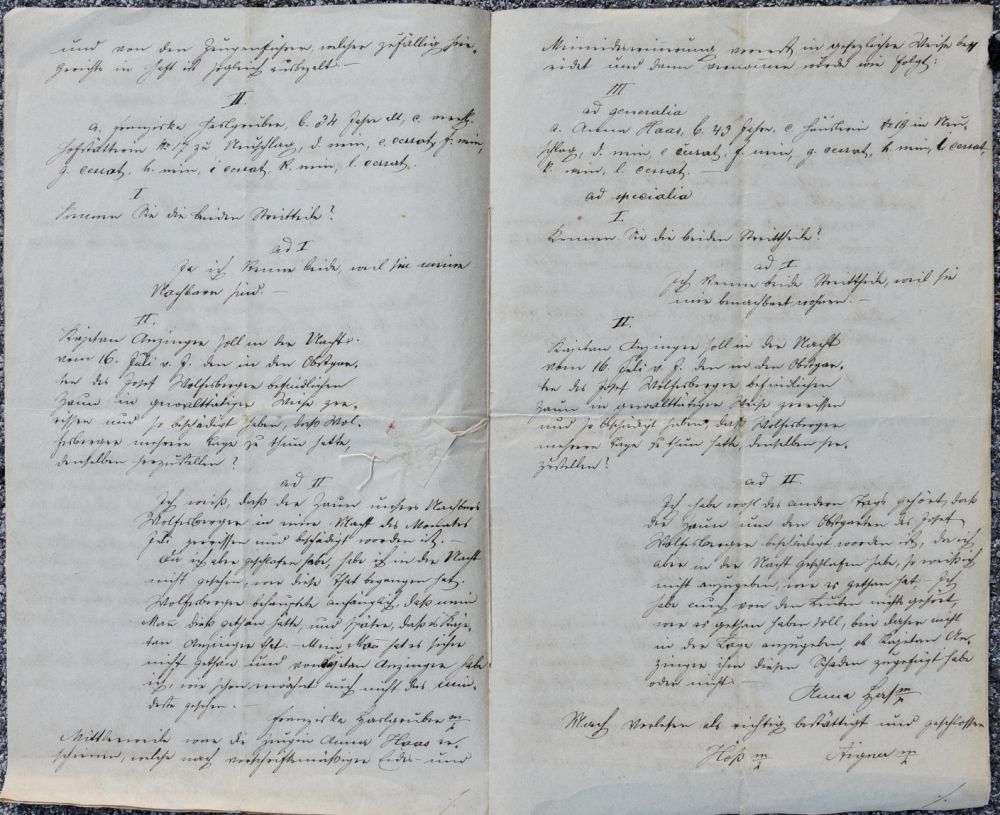 und von den Zeugenführer, welcher zufällig hier-
gerichts in Haft ist sogleich ausbezalt. —
II.
a. Franziska Haslgruber, b. 34 Jahre alt, c. verehl.
Hofstätterin № 17 zu Neuschlag, d. nein, e. cessat, f. nein,
g. cessat, h. nein, i cessat, k. nein, l. cessat.
I
Kennen Sie die beiden Streittheile?
ad I
Ja ich kenne beide, weil sie meine
Nachbarn sind. —
II.
Kajetan Anzinger soll in der Nacht
vom 16. Juli v. J. den in den Obstgar-
ten des Josef Wolfesberger befindlichen
Zaun in gewaltthätiger Weise zer-
rissen und so beschädigt haben, daß Wol-
fesberger mehrere Tage zu thun hatte,
denselben herzustellen?
ad II
Ich weiß, daß der Zaun unsers Nachbars
Wolfesberger in einer Nacht des Monates
Juli zerrissen und beschädigt worden ist. —
Da ich aber geschlafen habe, habe ich in der Nacht
nicht gesehen, wer diese That begangen hat.
Wolfesberger behauptete anfänglich, daß mein
Mann dieß gethan hatte, und später, daß es Kaje-
tan Anzinger that. Mein Mann hat es sicher
nicht gethan und von Kajetan Anzinger habe
ich, wie schon erwähnt auch nicht das min-
deste gesehen. —
Franziska Haslgruber m/p
Mittlerweile war die Zeugin Anna Haas er-
schienen, welche nach vorschriftsmäßiger Eides- und
Meineidserinnerung vorerst in gesezlicher Weise bee-
idet und dann vernommen wurde wie folgt:
III
ad generalia
a. Anna Haas, b. 43 Jahre, c. Häuslerin № 19 in Neu-
schlag, d. nein, e cessat, f. nein, g. cessat, h. nein, i cessat,
k. nein, l. cessat. —
ad specialia
I.
Kennen Sie die beiden Streittheile?
ad I.
Ich kenne beide Streittheile, weil sie
mir benachbart wohnen. —
II.
Kajetan Anzinger soll in der Nacht
vom 16. Juli v. J. den in den Obstgar-
ten des Josef Wolfesberger befindlichen
Zaun in gewaltthätiger Weise zerrissen
und so beschädigt haben, daß Wolfesberger
mehrere Tage zu thun hatte, denselben her-
zustellen?
ad II.
Ich habe wohl des andern Tags gehört, daß
der Zaun um den Obstgarten des Josef
Wolfesberger beschädigt worden ist, da ich
aber in der Nacht geschlafen habe, so weiß ich
nicht anzugeben, wer es gethan hat. – Ich
habe auch von den Leuten nicht gehört,
wer es gethan haben soll, bin daher nicht
in der Lage anzugeben, ob Kajetan An-
zinger ihm diesen Schaden zugefügt habe
oder nicht. —
Anna Haas m/p
Nach Vorlesen als richtig bestättigt und geschlossen
Höß m/p Aigner m/p